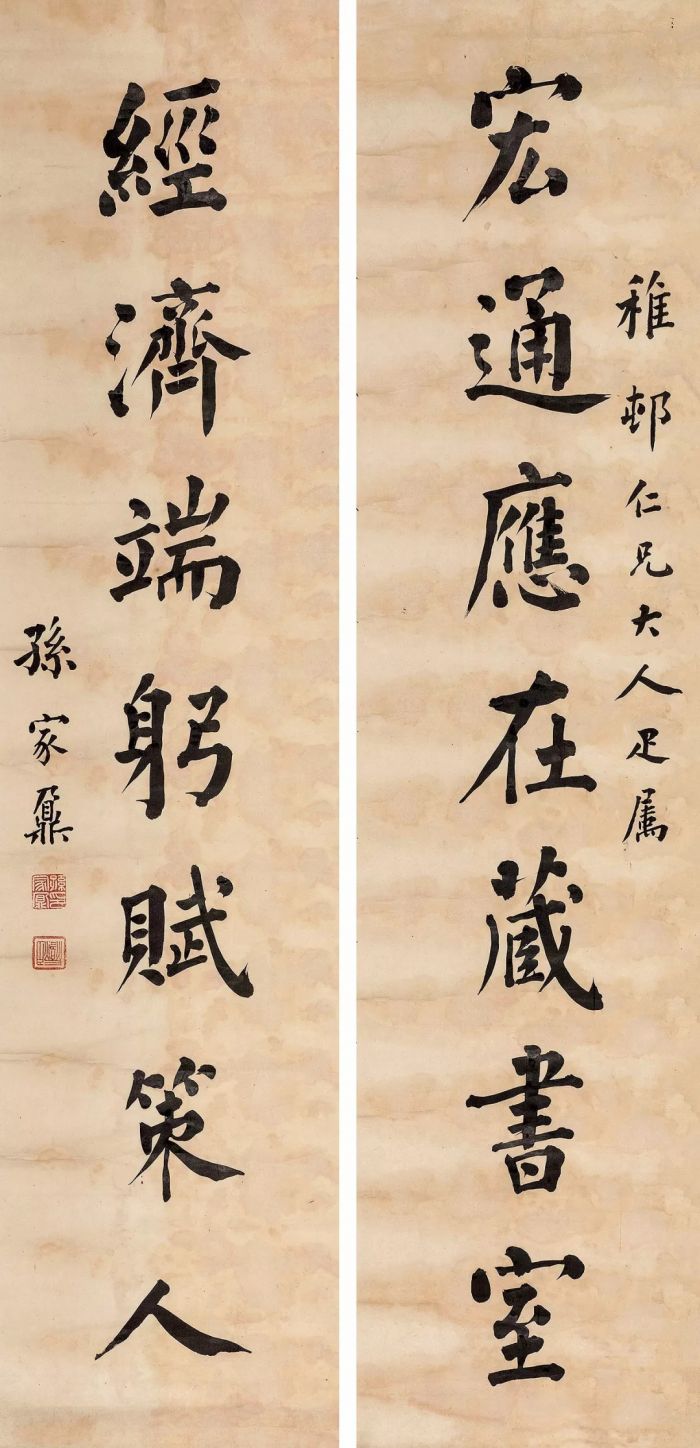 稚邨仁兄大人疋属
宏通應在藏書室
經濟端躬賦策人
孫家鼐